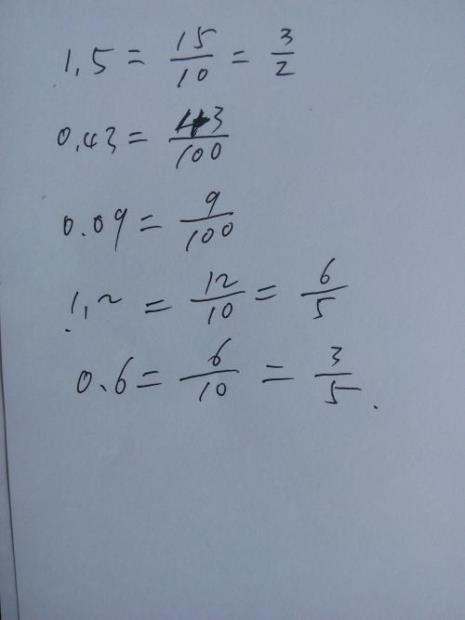 1.5 = 15/10 = 3/2
0.43 = 43/100
0.09 = 9/100
1.2 = 12/10 = 6/5
0.6 = 6/10 = 3/5.